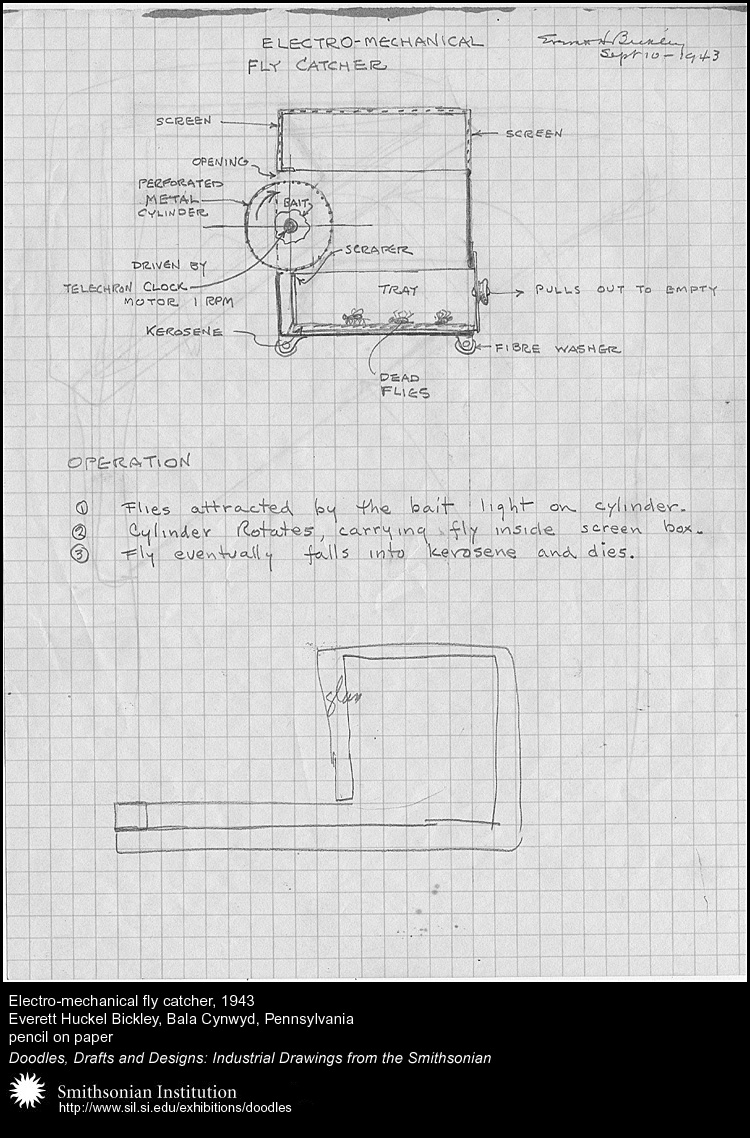 ELECTRO-MECHANICAL
FLY CATCHER
Everett H Bickley
Sept 10-1943
SCREEN
SCREEN
OPENING
PERFORATED
METAL
CYLINDER
BAIT
SCRAPER
DRIVEN BY
TELECHRON CLOCK
MOTOR 1 RPM
TRAY
PULLS OUT TO EMPTY
KEROSENE
FIBRE WASHER
DEAD
FLIES
OPERATION
① Flies attracted by the bait light on cylinder.
② Cylinder Rotates, carrying fly inside screen box.
③ Fly eventually falls into kerosene and dies.
Electro-mechanical fly catcher, 1943
Everett Huckel Bickley, Bala Cynwyd, Pennsylvania
pencil on paper
Doodles, Drafts and Designs: Industrial Drawings from the Smithsonian
Smithsonian Institution
http://www.sil.si.edu/exhibitions/doodles